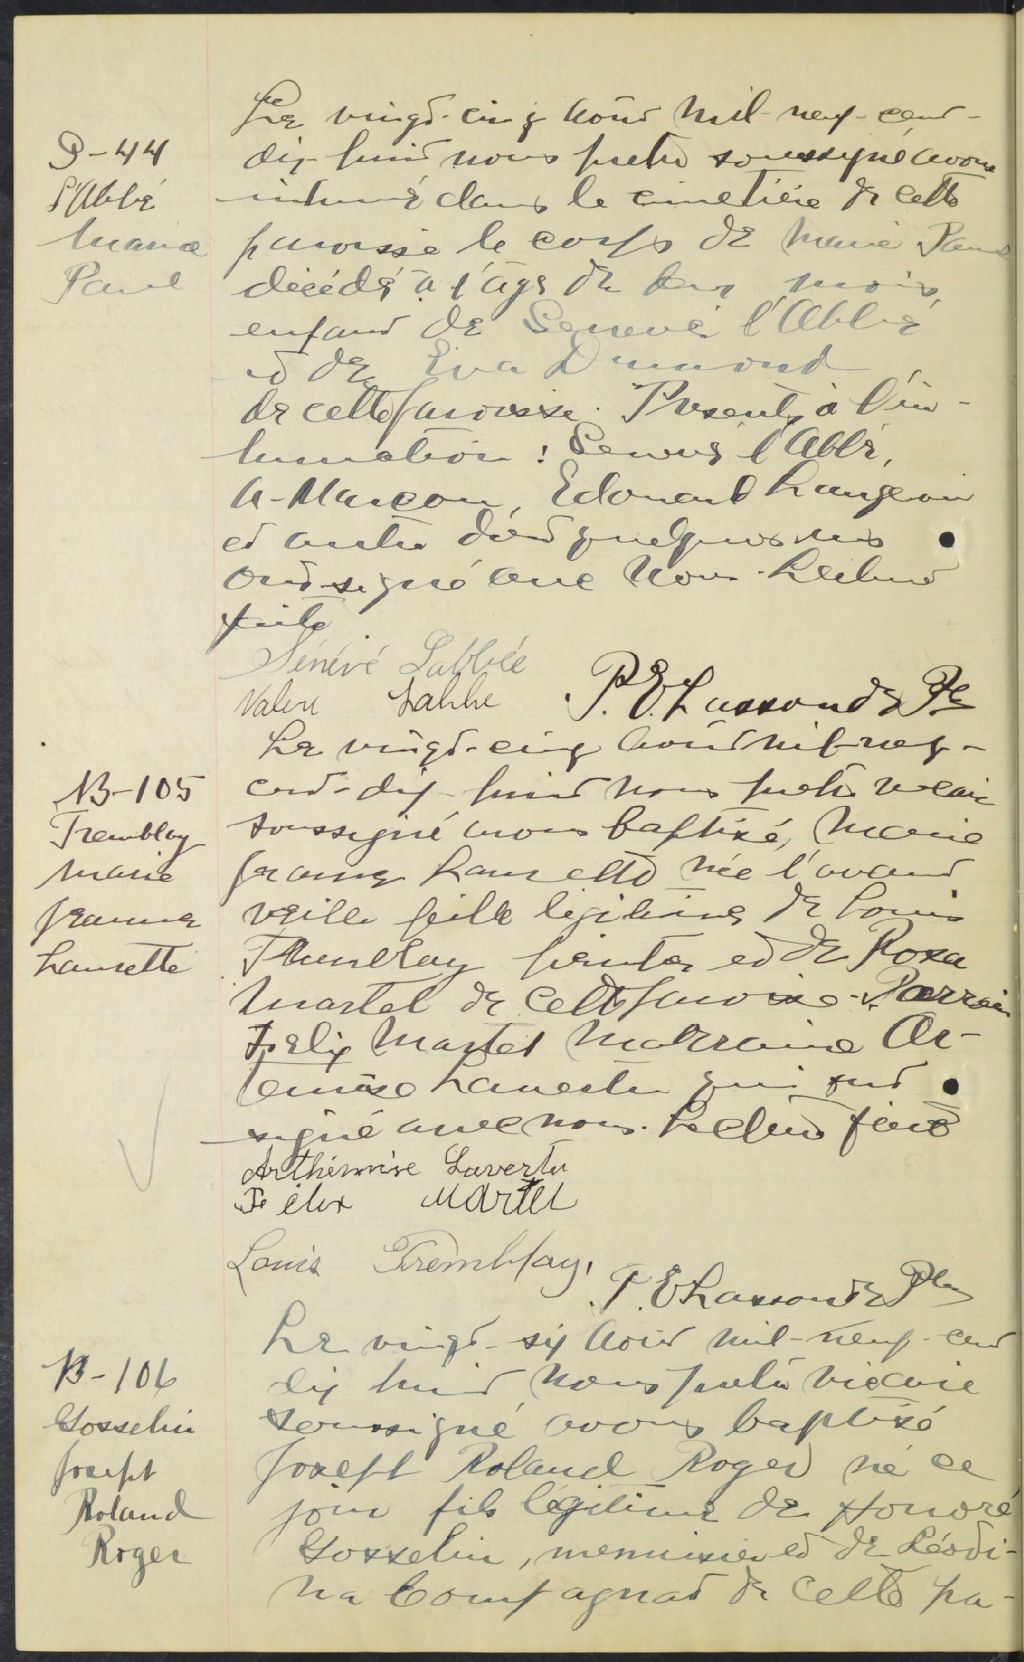 S-44
L'Abbé
Marie
Paul
Le vingt-cinq Août Mil-neuf-cent-
dix-huit nous prêtre soussigné avons
inhumé dans le cimetière de cette
paroisse le corps de Marie Paul
décédé à l'âge de deux mois,
enfant de Senevé l'Abbé
et de Eva Dumond
de cette paroisse. Présents à l'in-
humation : Senevé l'Abbé,
Edouard Langevin
et autres dont quelques uns
ont signé avec Nous. Lecture
faite
Sénévé Labbée
Valere Labbe P. E. Lassonde Ptr
B-105
Tremblay
Marie
Jeanne
Laurette
Le vingt-cinq Août mil-neuf-
cent-dix-huit Nous prêtre vicaire
soussigné avons baptisé, Marie
Jeanne Laurette née l'avant
veille fille légitime de Louis
Tremblay peintre et de Rosa
Martel de cette paroisse. Parrain
Felix Martel Marraine Ar-
temise Lavertu qui ont
signé avec nous. Lecture faite
Arthémise Lavertu
Félix Martel
Louis Tremblay,
P. E Lassonde Ptr
B-106
Gosselin
Joseph
Roland
Roger
Le vingt-six Août mil-neuf-cent
dix huit Nous prêtre vicaire
soussigné avons baptisé
Joseph Roland Roger né ce
jour fils légitime de Honoré
Gosselin, menuisier et de Léodi-
na Compagnat de cette pa-